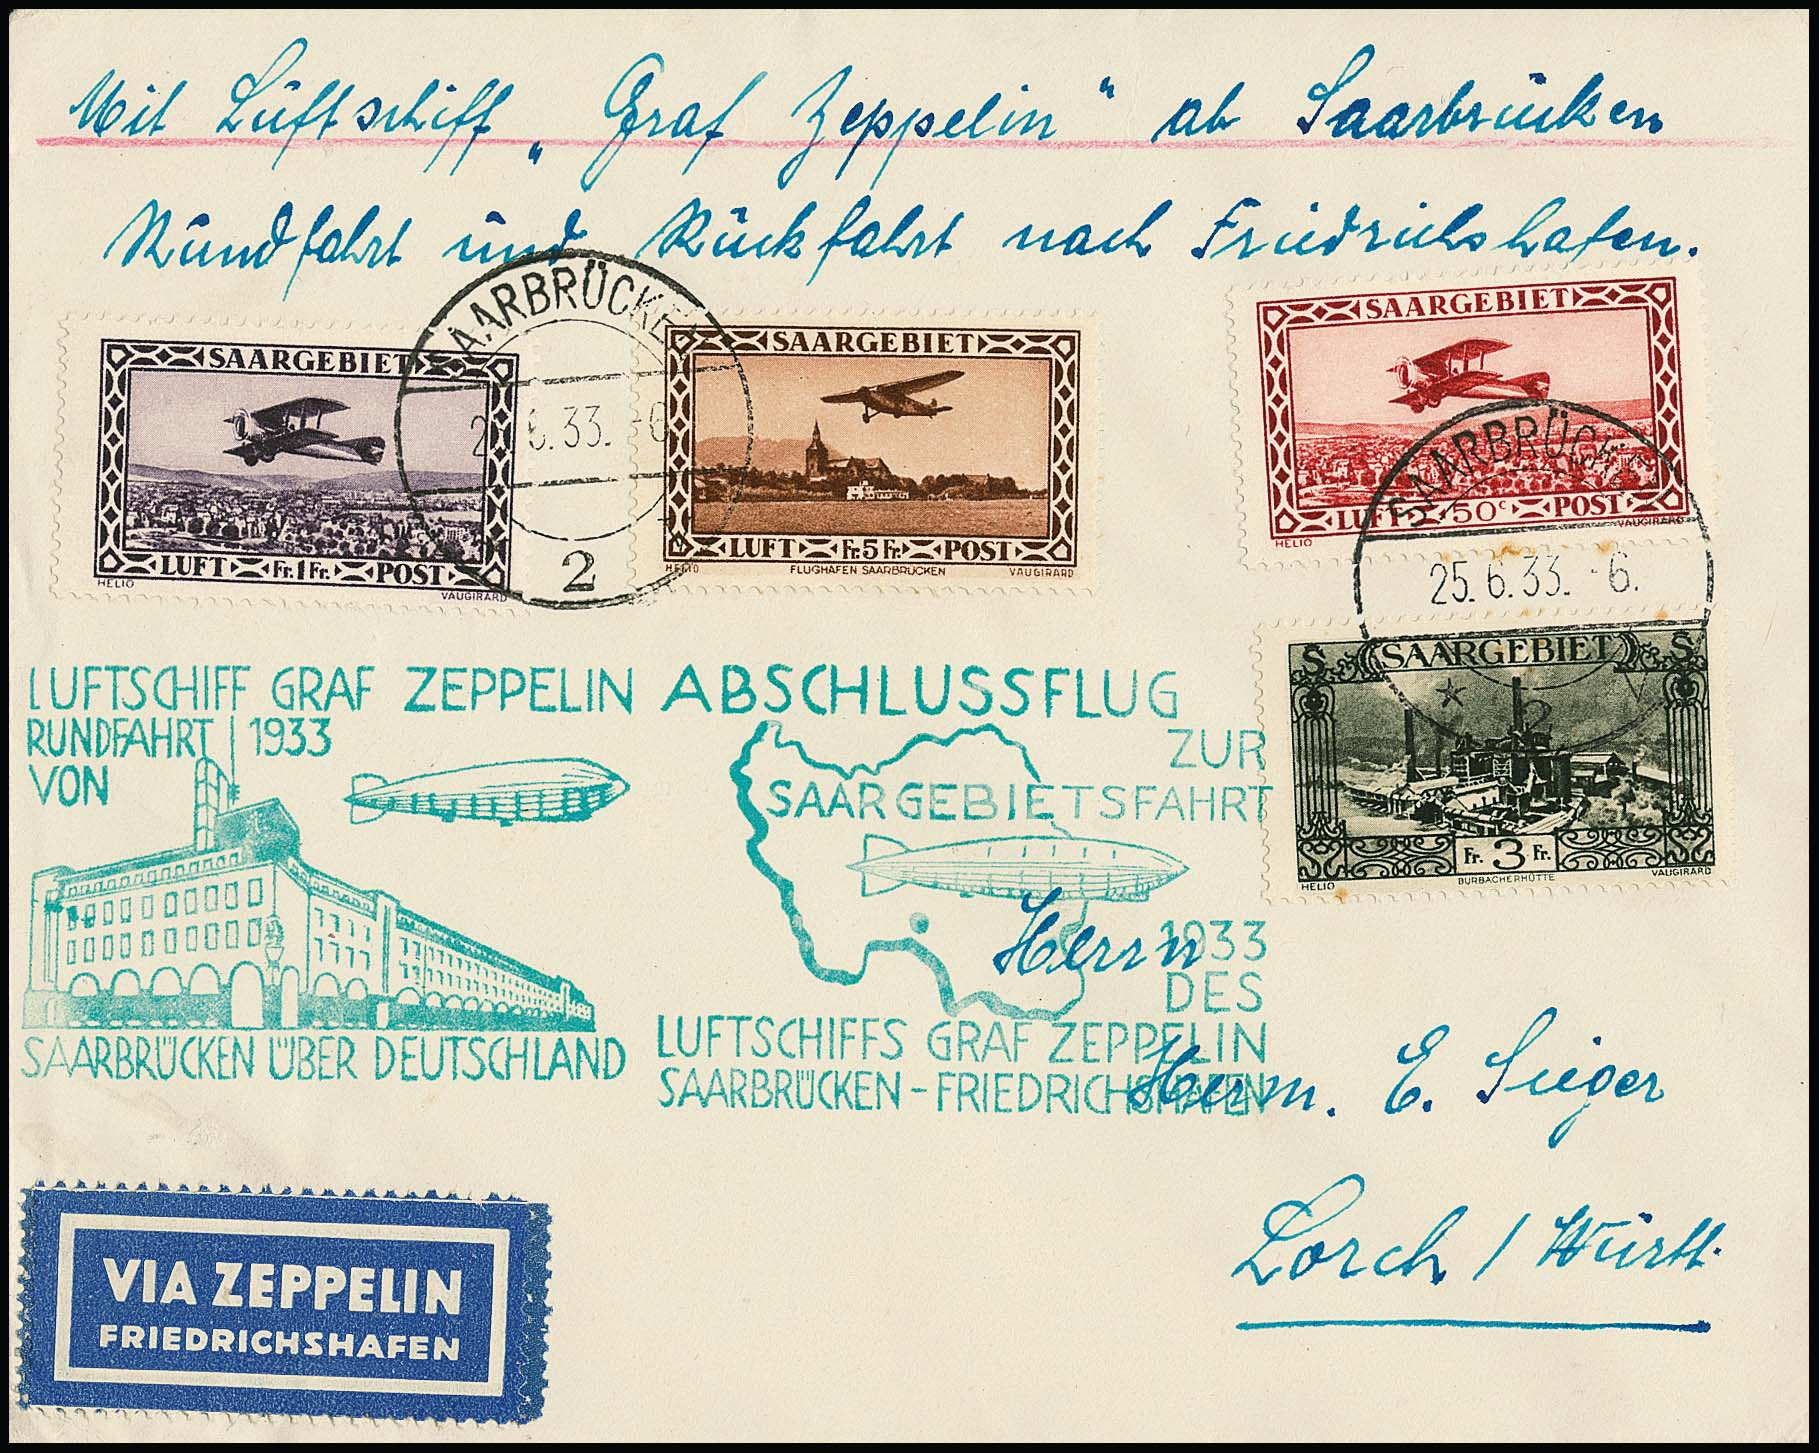 Mit Luftschiff „Graf Zeppelin" ab Saarbrücken
Rundfahrt und Rückfahrt nach Friedrichshafen.
SAARGEBIET
LUFT Fr. 1 Fr. POST
HELIO VAUGIRARD
SAARBRÜCKEN
6.33. -6
2
SAARGEBIET
LUFT Fr. 5 Fr. POST
HELIO FLUGHAFEN SAARBRÜCKEN VAUGIRARD
SAARGEBIET
LUFT 50c POST
HELIO VAUGIRARD
SAARBRÜCKEN
25.6.33. -6.
2
S SAARGEBIET S
Fr. 3 Fr.
HELIO BURBACHERHÜTTE VAUGIRARD
LUFTSCHIFF GRAF ZEPPELIN
RUNDFAHRT 1933
VON
SAARBRÜCKEN ÜBER DEUTSCHLAND
ABSCHLUSSFLUG
ZUR
SAARGEBIETSFAHRT
1933
DES
LUFTSCHIFFS GRAF ZEPPELIN
SAARBRÜCKEN-FRIEDRICHSHAFEN
Herrn
Herm. E. Sieger
Lorch / Württ.
VIA ZEPPELIN
FRIEDRICHSHAFEN